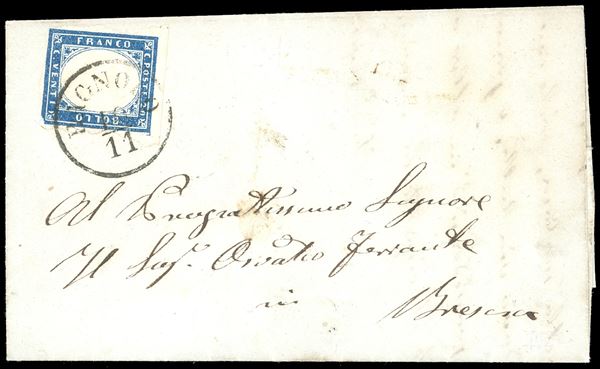 FRANCO
C. POSTE
BOLLO
C. VENTI
11
Al Pregiatissimo Signore
Il Sig.r Ferrante
in Brescia